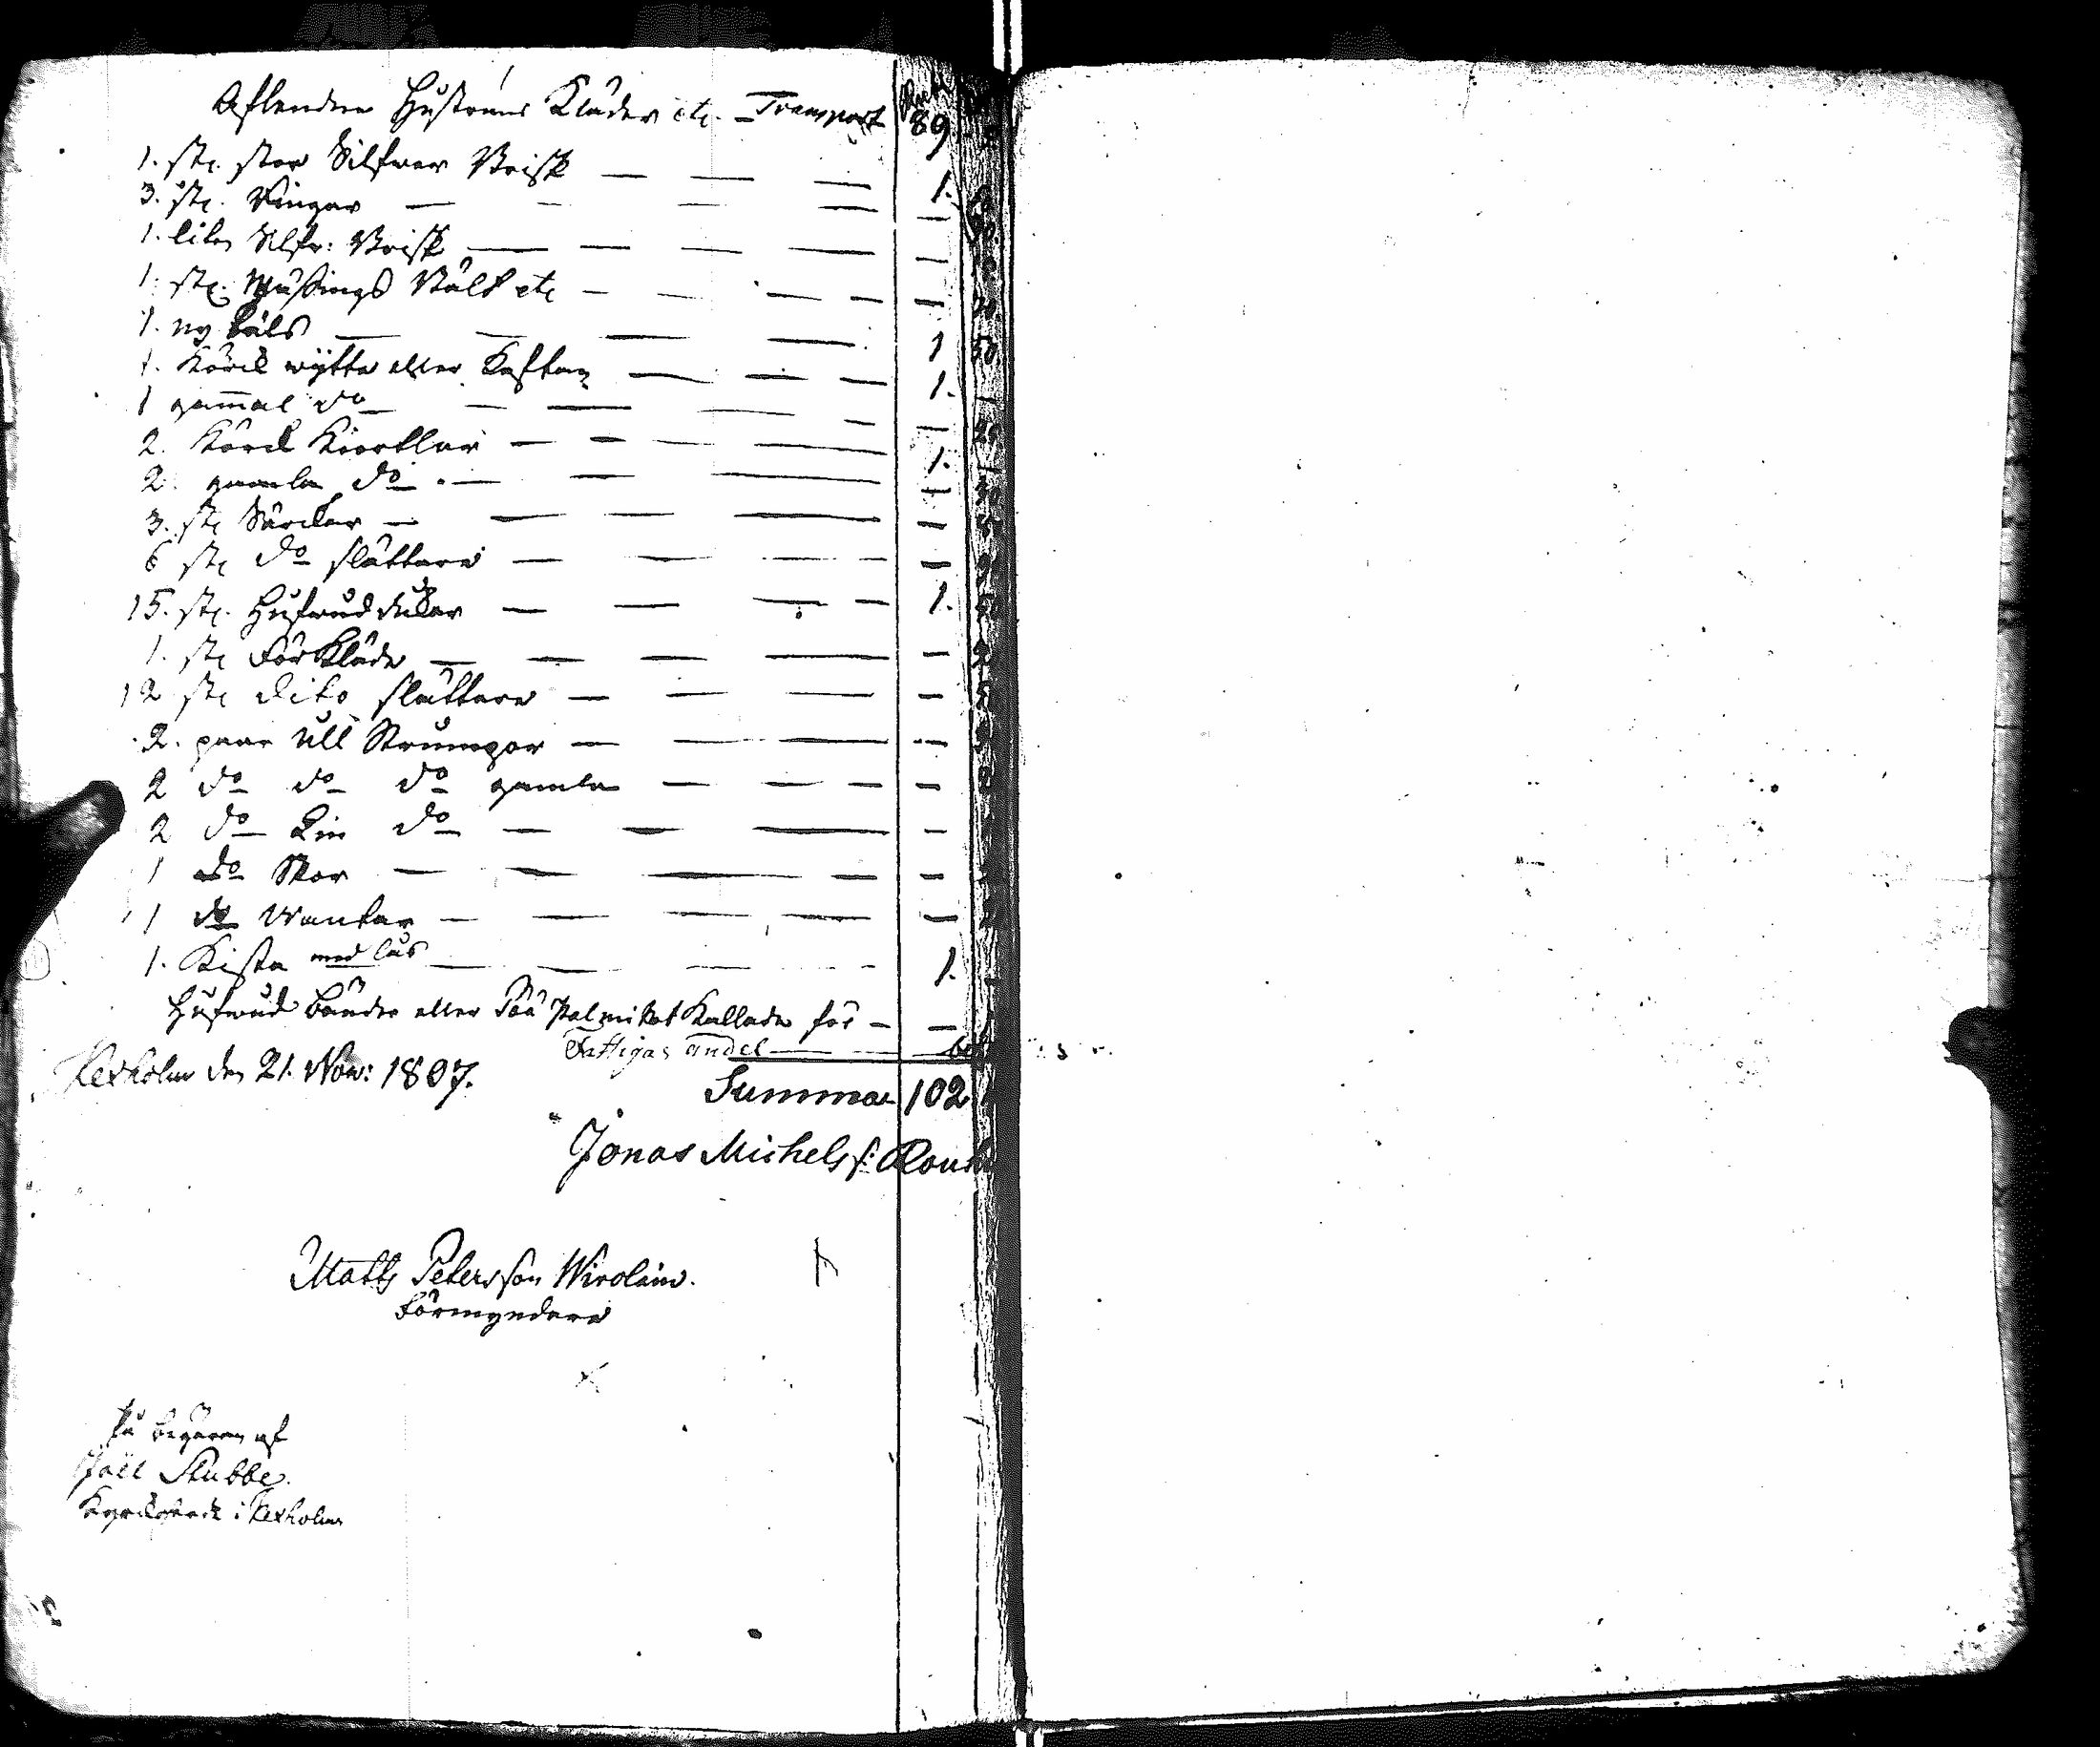 Aflendne Hustruns Kläder etc. – Transport 89.
1. st. stor Silfwer Brisk — — — 1.
3. st. Ringar — — — — —
1. liten Silfr: Brisk — — — —
1. st. Mässings Bält etc — — — — — 20.
1. ny Päls — — — — 1 50.
1. Körck wytta eller Kaftan — — — 1. —
1 gammal do — — — — — —
2. Körck Kiortlar — — — 1. —
2. gamla do — — — — 30
3. st Särckar — — — — —
6 st do slättare — — — —
15. st. Hufwud dukar — — — — 1. 50
1. st Förkläde — — — — —
12 st dito slättare — — — —
2. paar Ull Strumpor — — — —
2 do do do gamla — — — —
2 do Lin do — — — —
1 do Skor — — — — —
1 do Wantar — — — — —
1. Kista med lås — — — — 1. —
Hufwud bånder eller Pää Palmikot Kallade för — —
Fattigas andel — —
Kexholm den 21. Now: 1807.
Summa 102
Jonas Michels s:
Matts Petersson Wirolain.
Förmyndare
På begäran af
Joel Stubbe.
i Kexholm